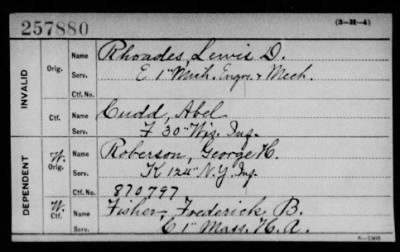 257880
(3-H-4)
INVALID
Orig.
Name Rhoades, Lewis D.
Serv. E 1" Mich. Engrs. & Mech.
Ctf. No.
Ctf.
Name Cudd, Abel
Serv. F 30" Wis. Inf.
DEPENDENT
W. Orig.
Name Roberson, George H.
Serv. K 124" N.Y. Inf.
Ctf. No. 870797
W. Ctf.
Name Fisher, Frederick B.
Serv. C 1" Mass. H. A.